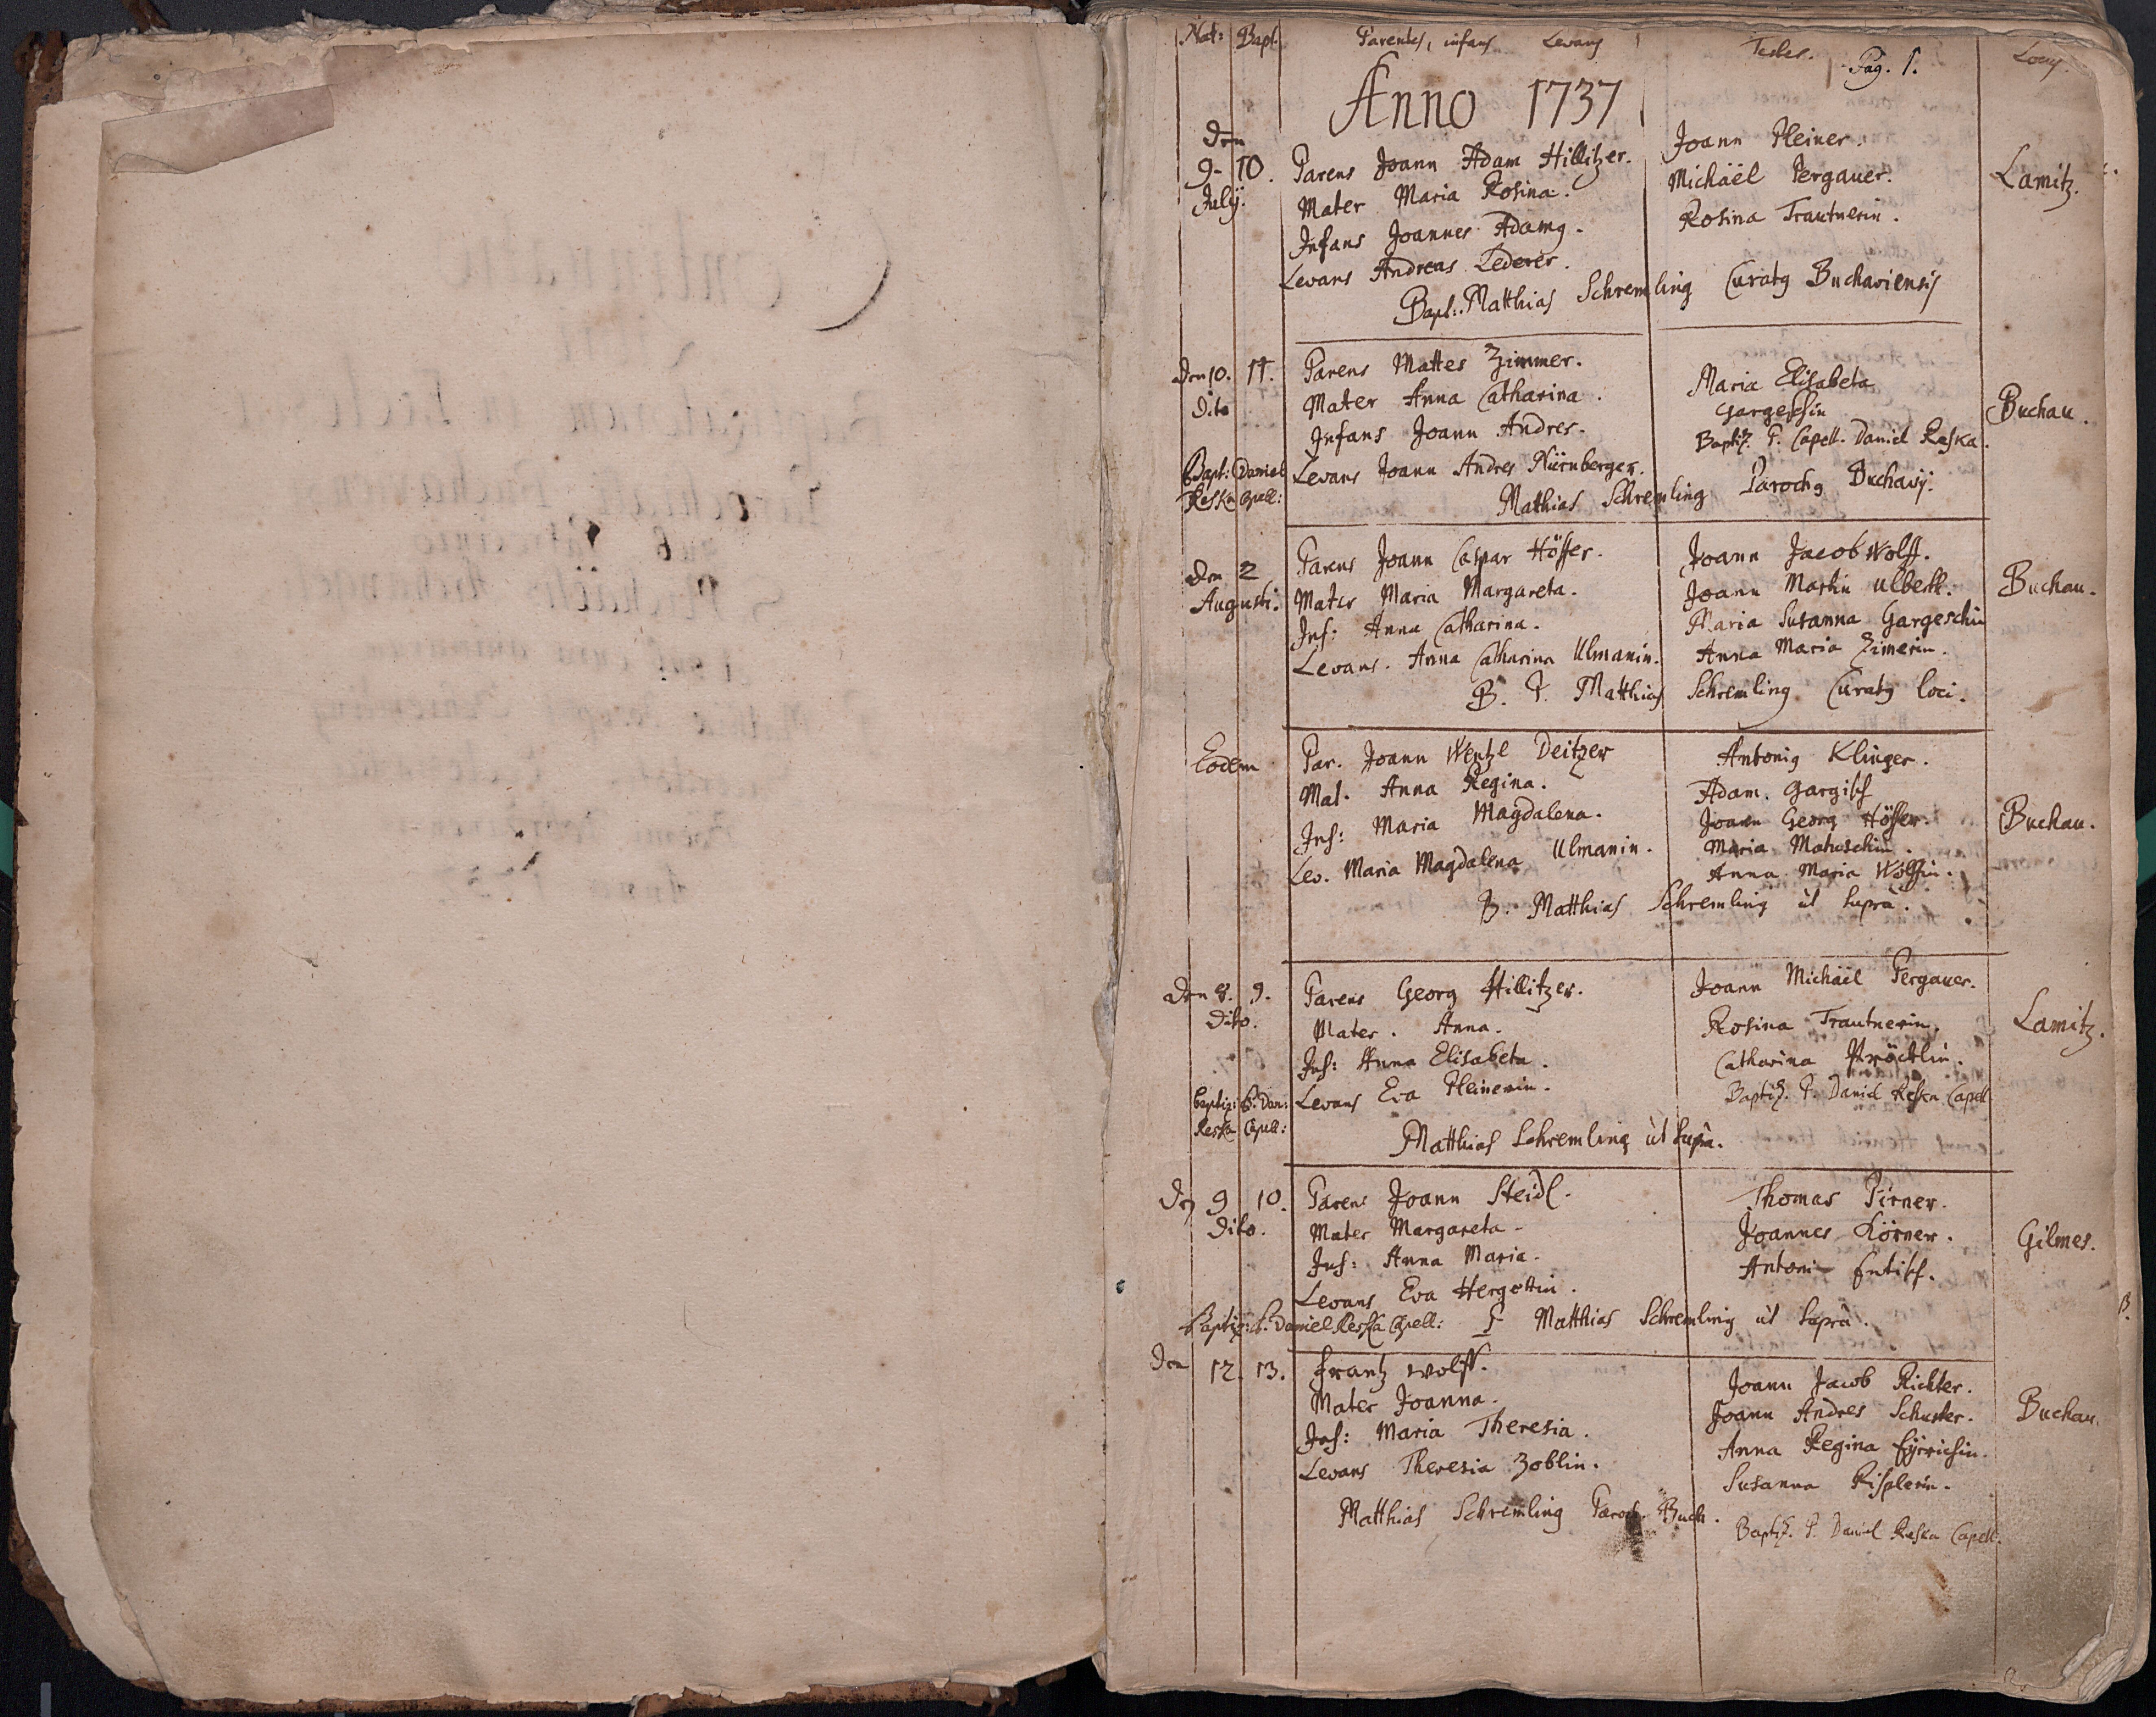 Nat: Bapt. Parentes, infans Levans Testes. Pag. 1.
Anno 1737
Den
9. 10. Parens Joann Adam Hillitzer. Joann Pleiner.
July. Mater Maria Rosina. Michäel Pergauer. Lamitz.
Infans Joannes Adamg. Rosina Trautnerin.
Levans Andreas Lederer.
Bapt: Matthias Schremling Curatg Buchaviensis
Den 10. 11. Parens Mattes Zimmer. Maria Elisabeta
Dito Mater Anna Catharina. Gargeschin Buchau.
Infans Joann Andres. Baptiz. P. Capell. Daniel Reska.
Bapt: Daniel Levans Joann Andres Nürnberger.
Reska Capell: Mathias Schremling Parochg Buchavij.
Den 2 Parens Joann Caspar Höffer. Joann Jacob Wolff.
Augusti. Mater Maria Margareta. Joann Martin Ulbert. Buchau.
Inf: Anna Catharina. Maria Susanna Gargeschin
Levans. Anna Catharina Ulmanin. Anna Maria Zimerin.
B. P. Matthias Schremling Curatg loci.
Eodem Par. Joann Wentzl Deitzer Antonig Klinger.
Mat. Anna Regina. Adam. Gargisch
Inf: Maria Magdalena. Joann Georg Höffer. Buchau.
Lev. Maria Magdalena Ulmanin. Maria
Anna Maria Wolffin.
B. Matthias Schremling ut supra.
Den 8. 9. Parens Georg Hillitzer. Joann Michäel Pergauer.
Dito. Mater. Anna. Rosina Trautnerin. Lamitz.
Inf: Anna Elisabeta. Catharina
Baptiz: P. Dan: Levans Eva Pleinerin. Baptiz. P. Daniel Reska Capell
Reska Capell: Matthias Schremling ut supra.
Den 9 10. Parens Joann Steidl. Thomas Pirner.
Dito. Mater Margareta. Joannes Körner. Gilmes.
Inf: Anna Maria. Antoni Entisch.
Levans Eva Hergottin.
Baptiz: P. Daniel Reska Capell: P Matthias Schremling ut supra.
Den 12. 13. Frantz Wolff. Joann Jacob Richter.
Mater Joanna. Joann Andres Schuster. Buchau.
Inf: Maria Theresia. Anna Regina
Levans Theresia Zoblin. Susanna Risplerin.
Matthias Schremling Paroch. Buch. Baptiz. P. Daniel Reska Capell.